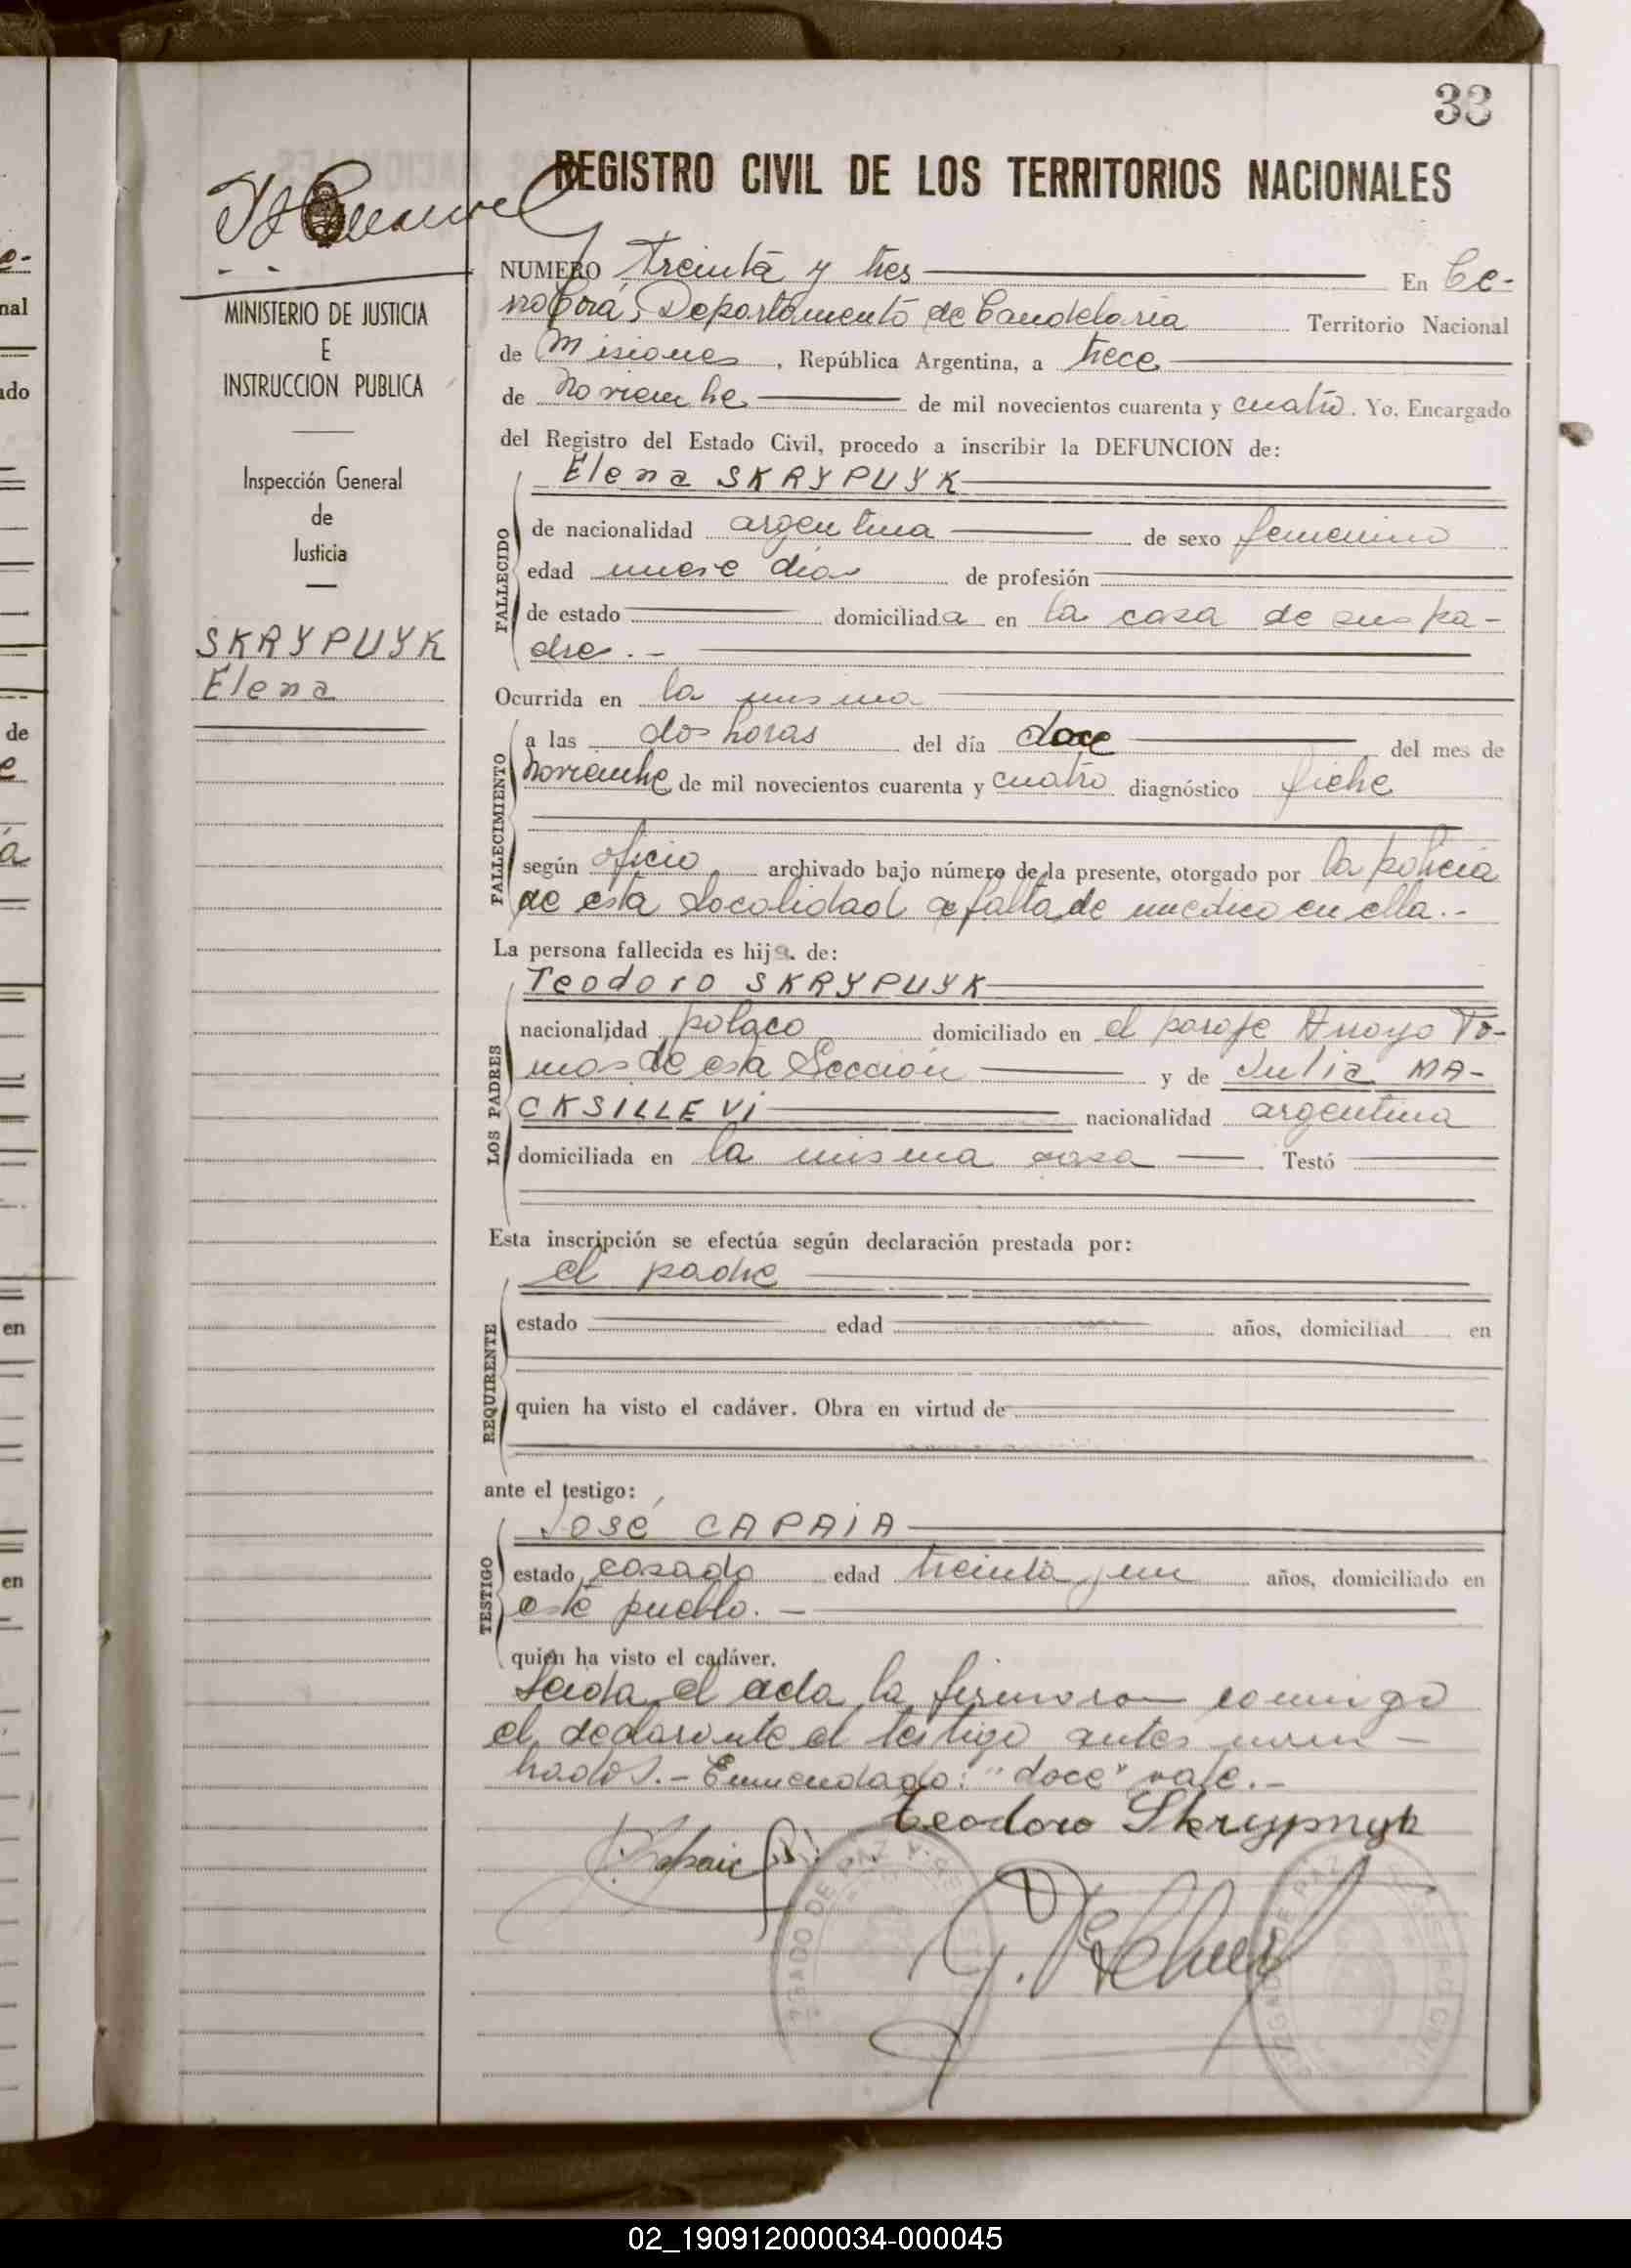 33
REGISTRO CIVIL DE LOS TERRITORIOS NACIONALES
MINISTERIO DE JUSTICIA
E
INSTRUCCION PUBLICA
Inspección General
de
Justicia
SKRYPUYK
Elena
NUMERO Treinta y tres En Ce-
rro Corá, Departamento de Candelaria Territorio Nacional
de Misiones, República Argentina, a trece
de Noviembre de mil novecientos cuarenta y cuatro. Yo, Encargado
del Registro del Estado Civil, procedo a inscribir la DEFUNCION de:
Elena SKRYPUYK
FALLECIDO
de nacionalidad argentina de sexo femenino
edad nueve días de profesión
de estado domiciliada en la casa de sus pa-
dres.-
Ocurrida en la misma
FALLECIMIENTO
a las dos horas del día doce del mes de
Noviembre de mil novecientos cuarenta y cuatro diagnóstico fiebre
según oficio archivado bajo número de la presente, otorgado por la policía
de esta Localidad a falta de medico en ella.-
La persona fallecida es hija. de:
Teodoro SKRYPUYK
LOS PADRES
nacionalidad polaco domiciliado en el paraje Arroyo To-
mas de esta Sección y de Julia MA-
CKSILLEVI nacionalidad argentina
domiciliada en la misma casa Testó
Esta inscripción se efectúa según declaración prestada por:
el padre
REQUIRENTE
estado edad años, domiciliad en
quien ha visto el cadáver. Obra en virtud de
ante el testigo:
José CAPAIA
TESTIGO
estado casado edad treinta y un años, domiciliado en
este pueblo.-
quien ha visto el cadáver.
Leida el acta la firmaron conmigo
el declarante el testigo antes nom-
brados.- Enmendado: "doce" vale.-
Teodoro Skrypnyk
02_190912000034-000045